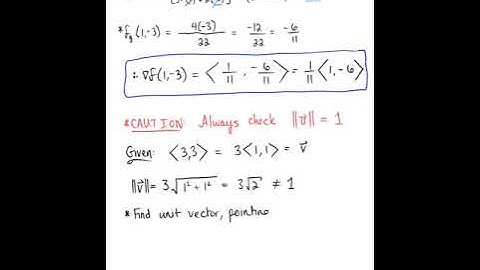 *f_y(1,-3) = 4(-3)/22 = -12/22 = -6/11
∴ ∇f(1,-3) = ⟨1/11, -6/11⟩ = 1/11 ⟨1,-6⟩
*CAUTION: Always check ||v⃗|| = 1
Given: ⟨3,3⟩ = 3⟨1,1⟩ = v⃗
||v⃗|| = 3√(1²+1²) = 3√2 ≠ 1
*Find unit vector, pointing